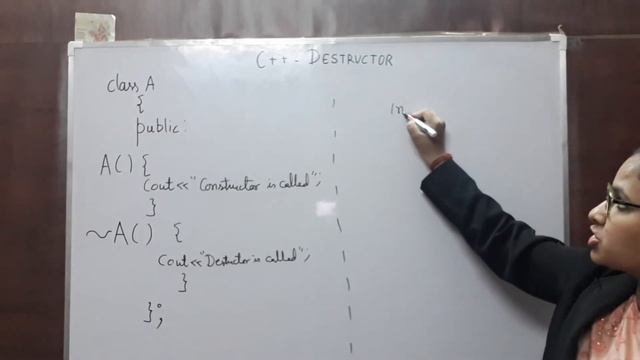 C++ - DESTRUCTOR
class A
{
public:
A() {
Cout<<"Constructor is called";
}
~A() {
Cout<<"Destructor is called";
}
};
in